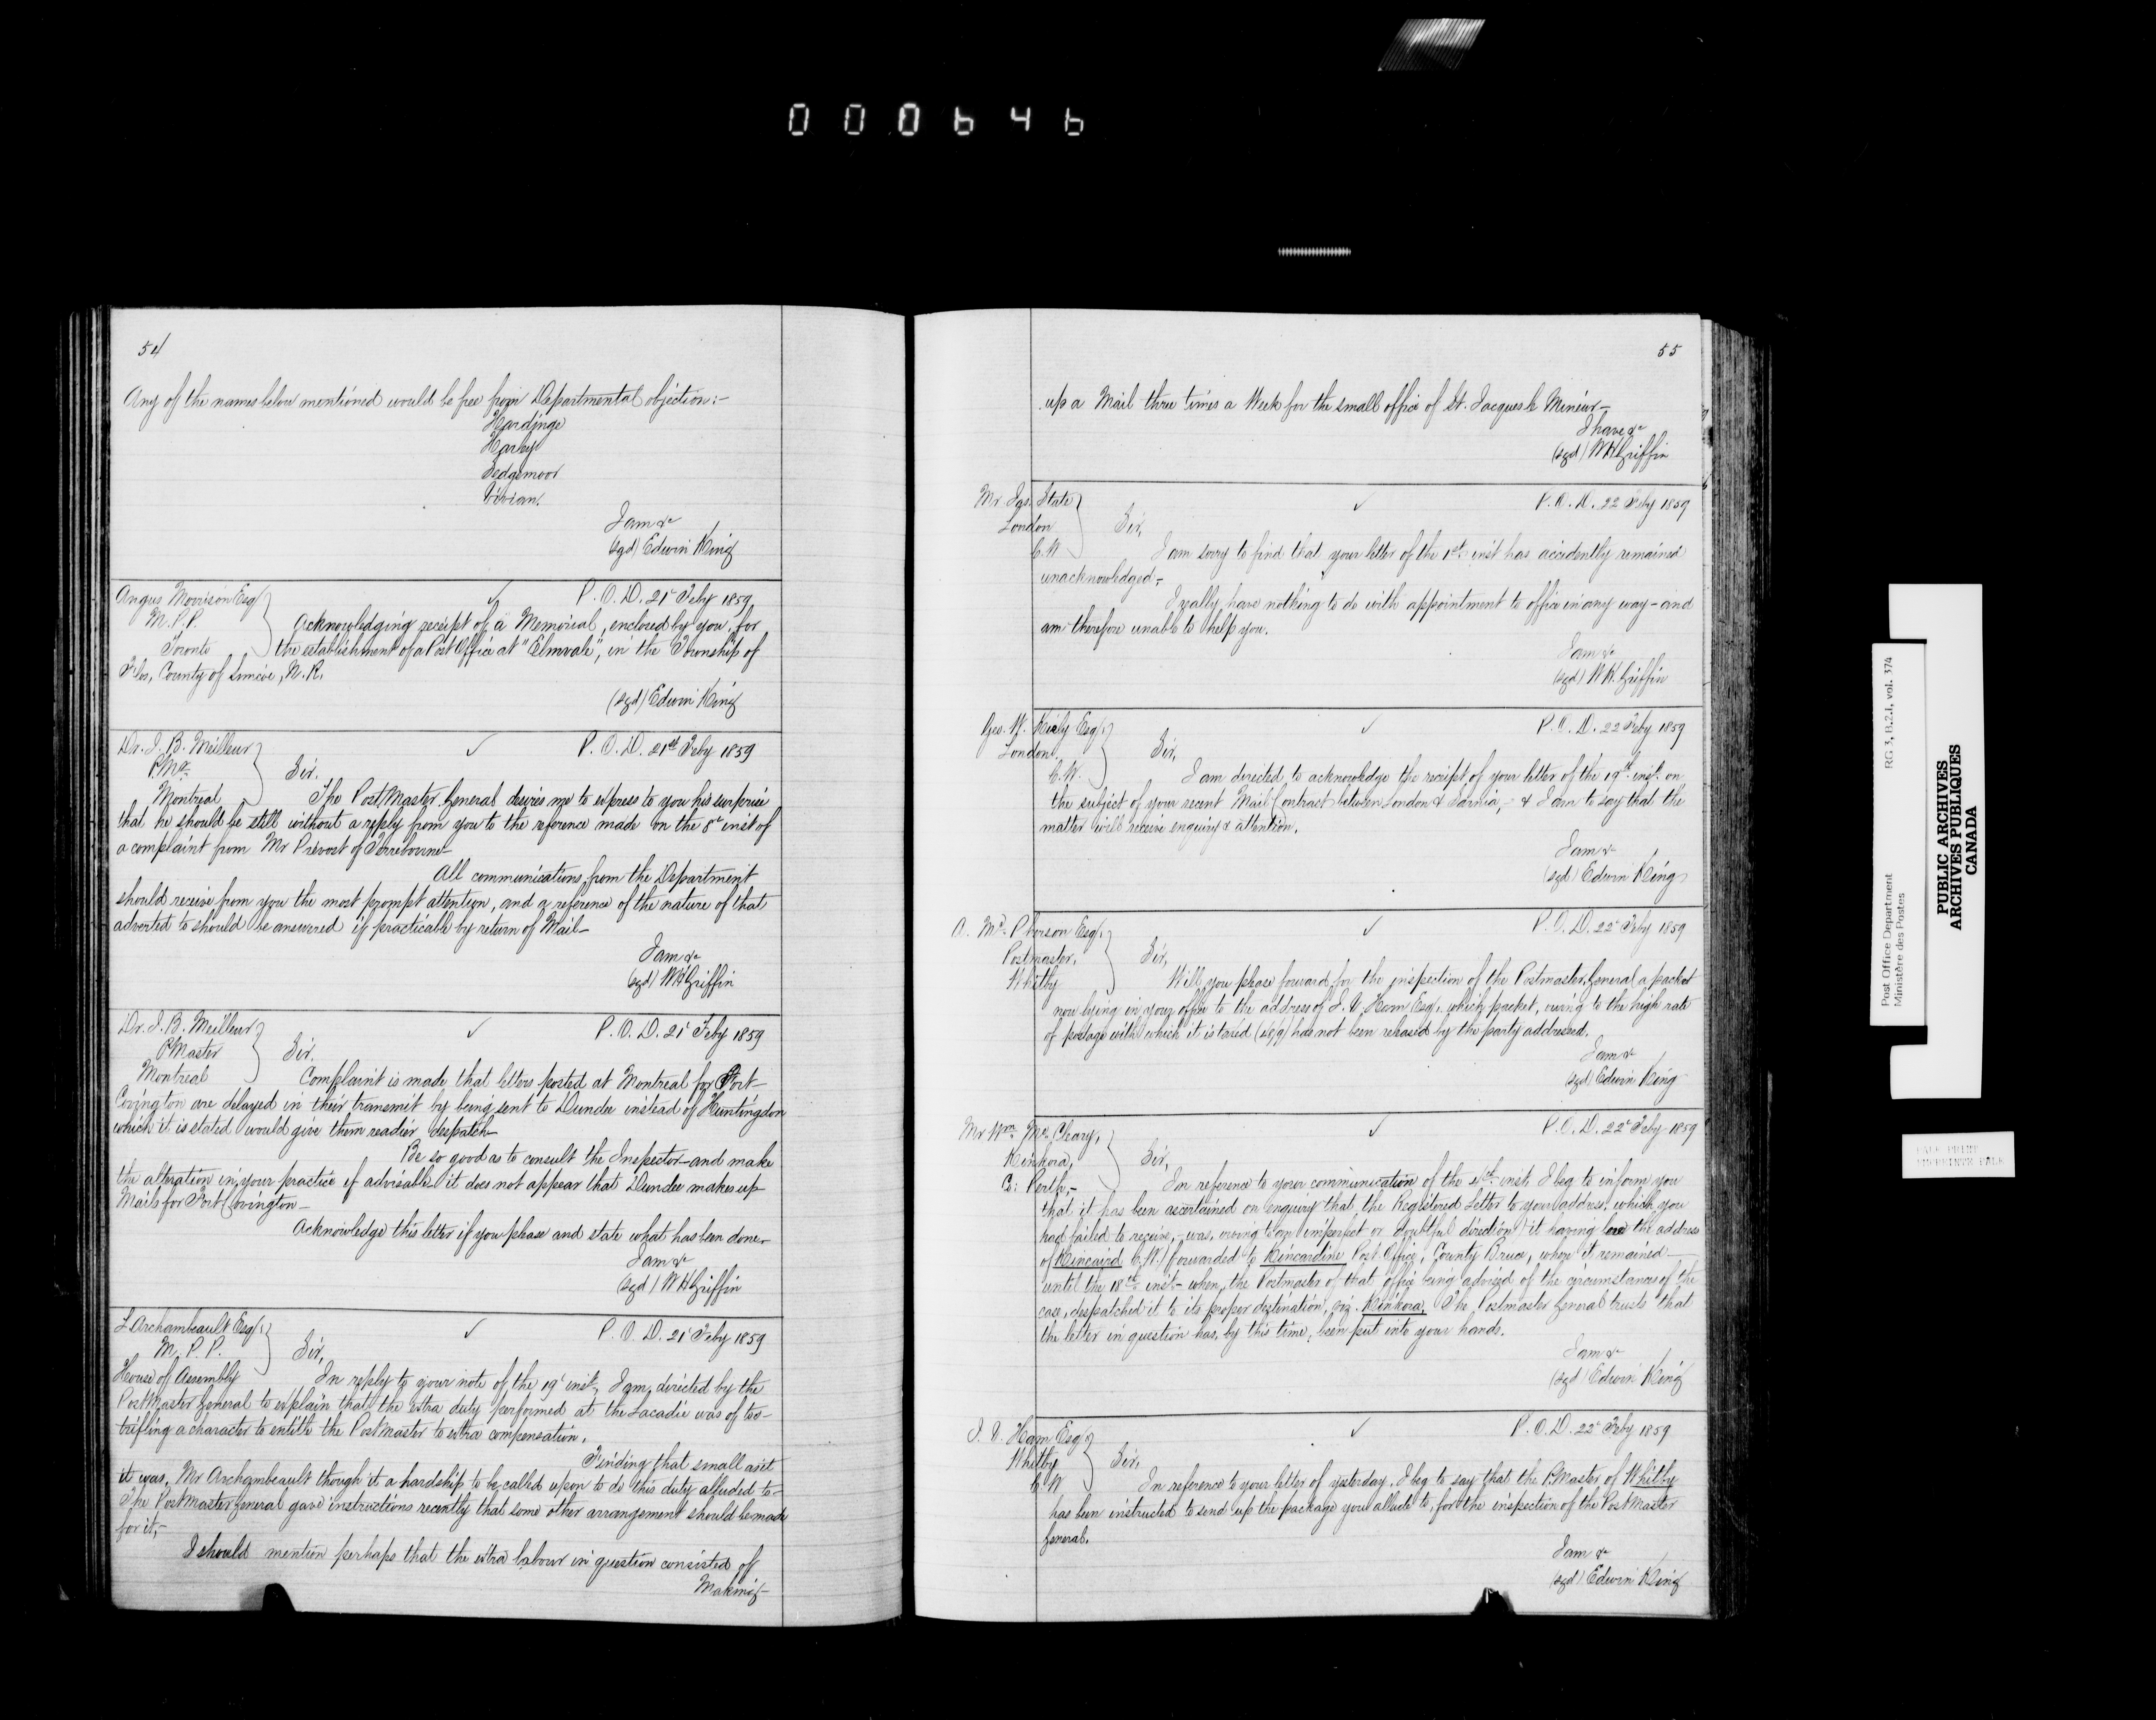 000646
54
Any of the names below mentioned would be free from Departmental objection:-
Hardinge
Harley
Sedgemoor
Vivian.
I am &c
(sgd) Edwin King
Angus Morrison Esq
M.P.P.
Toronto
P.O.D. 21st Feby 1859
Acknowledging receipt of a Memorial, enclosed by you, for
the establishment of a Post Office at "Elmvale", in the Township of
Flos, County of Simcoe, N.R.
(sgd) Edwin King
Dr. J. B. Meilleur
P.Mr.
Montreal
P.O.D. 21st Feby 1859
Sir.
The Post Master General desires me to express to you his surprise
that he should be still without a reply from you to the reference made on the 8th inst of
a complaint from Mr Prevost of Terrebonne-
All communications from the Department
should receive from you the most prompt attention, and a reference of the nature of that
adverted to should be answered if practicable by return of Mail-
I am &c
(sgd) W H Griffin
Dr. J. B. Meilleur
P Master
Montreal
P.O.D. 21st Feby 1859
Sir.
Complaint is made that letters posted at Montreal for Fort-
Covington are delayed in their transmit by being sent to Dundee instead of Huntingdon
which it is stated would give them readier despatch-
Be so good as to consult the Inspector-and make
the alteration in your practice if advisable-it does not appear that Dundee makes up
Mails for Fort Covington-
Acknowledge this letter if you please and state what has been done-
I am &c
(sgd) W H Griffin
L Archambeault Esq.
M.P.P.
House of Assembly
P.O.D. 21st Feby 1859
Sir,
In reply to your note of the 19th inst, I am directed by the
PostMaster General to explain that the extra duty performed at the Lacadie was of too-
trifling a character to entitle the PostMaster to extra compensation.
Finding that small as it
it was, Mr Archambeault though it a hardship to be called upon to do this duty alluded to-
The PostMaster General gave instructions recently that some other arrangement should be made
for it,-
I should mention perhaps that the extra labour in question consisted of
Making-
55
up a Mail three times a Week for the small office of St. Jacques le Mineur-
I have &c
(sgd) W H Griffin
Mr. Jas. State
London
C.W
P.O.D. 22 Feby 1859
Sir,
I am sorry to find that your letter of the 1st. inst has accidently remained
unacknowledged,-
I really have nothing to do with appointment to office in any way-and
am therefore unable to help you.
I am &c
(sgd) W H. Griffin
Geo. W. Kiely Esq.
London.
C.W.
P.O.D. 22 Feby 1859
Sir,
I am directed to acknowledge the receipt of your letter of the 19th. inst. on
the subject of your recent Mail Contract between London & Sarnia,- & I am to say that the
matter will receive enquiry & attention.
I am &c
(sgd) Edwin King
A. Mc.Pherson Esq.
Postmaster.
Whitby
P.O.D. 22d Feby 1859
Sir,
Will you please forward, for the inspection of the Postmaster General a packet
now lying in your office to the address of J. V. Ham Esq., which packet, owing to the high rate
of postage with which it is taxed has not been released by the party addressed.
I am &
(sgd) Edwin King
Mr Wm. Mc.Cleary,
Kinkora,
Co: Perth,-
P.O.D. 22d Feby 1859
Sir,
In reference to your communication of the 4th. inst, I beg to inform you
that it has been ascertained on enquiry that the Registered Letter to your address, which you
had failed to receive, was, owing to an imperfect or doubtful direction (it having bore the address
of Kincaird C.W.) forwarded to Kincardine Post Office, County Bruce, where it remained
until the 18th. inst- when the Postmaster of that office being advised of the circumstances of the
case, despatched it to its proper destination, viz. Kinkora. The Postmaster General trusts that
the letter in question has, by this time, been put into your hands.
I am &c
(sgd) Edwin King
J. V. Ham Esq.
Whitby
C.W
P.O.D. 22d Feby 1859
Sir,
In reference to your letter of yesterday, I beg to say that the P.Master of Whitby
has been instructed to send up the package you allude to, for the inspection of the PostMaster
General.
I am &c
(sgd) Edwin King
Post Office Department RG 3, B.2.1, vol. 374
Ministère des Postes
PUBLIC ARCHIVES
ARCHIVES PUBLIQUES
CANADA